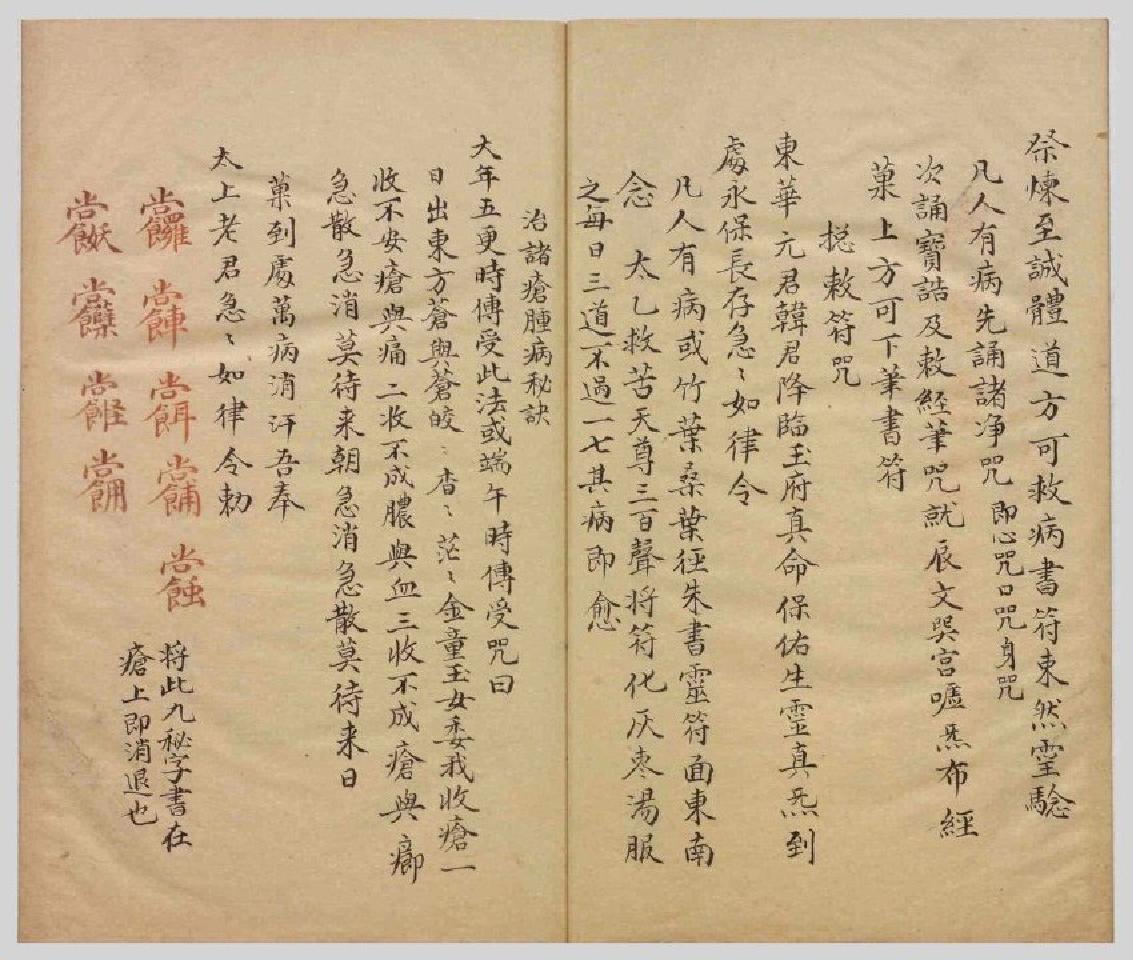 祭煉至誠體道方可救病書符東然霊驗
凡人有病先誦諸净咒即心咒口咒身咒
次誦寶誥及敕經筆咒就辰文巽宫嘘炁布經
菓上方可下筆書符
捴敕符咒
東華元君韓君降臨玉府真命保佑生靈真炁到
處永保長存急〻如律令
凡人有病或竹葉桑葉徑朱書靈符面東南
念太乙救苦天尊三百聲将符化灰枣湯服
之每日三道不過一七其病即愈
治諸瘡腫病秘訣
大年五更時傳受此法或端午時傳受咒曰
日出東方蒼與蒼皎〻杳〻茫〻金童玉女委我收瘡一
收不安瘡與痛二收不成膿與血三收不成瘡與癤
急散急消莫待来朝急消急散莫待来日
菓到處萬病消汗吾奉
太上老君急〻如律令勅
将此九秘字書在
瘡上即消退也